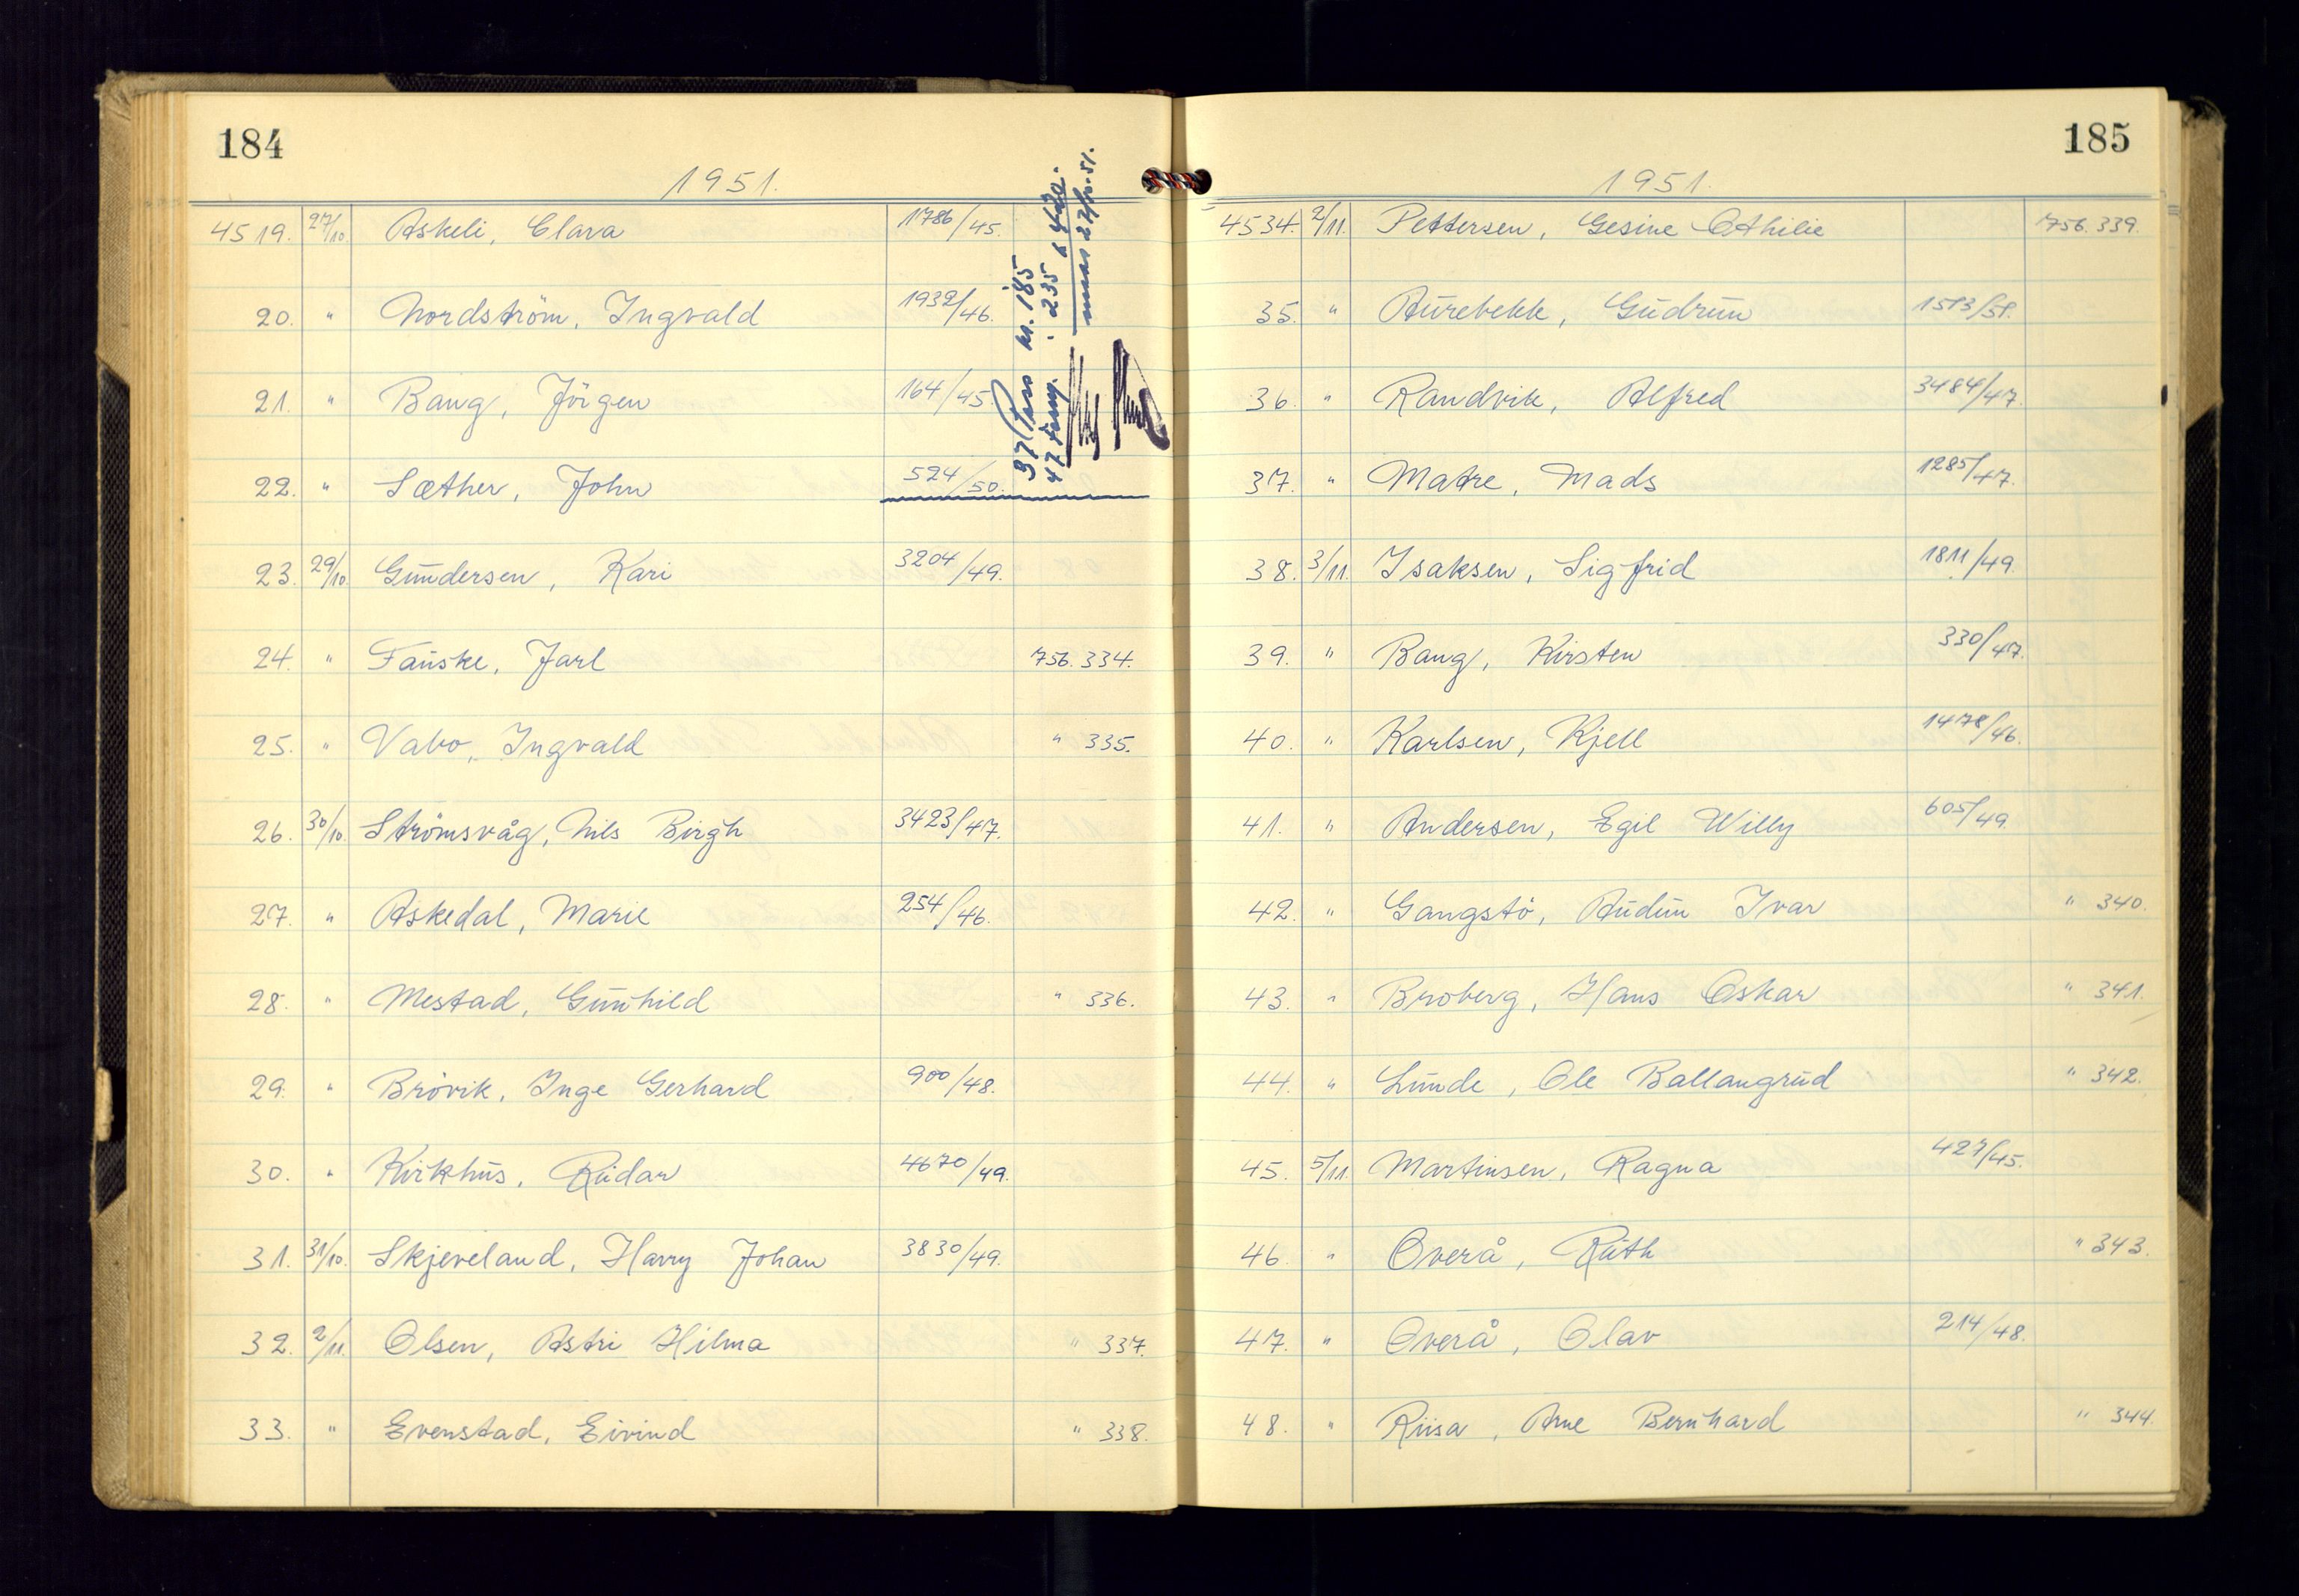 184
1951.
4519. 27/10 Askeli, Clara 11786/45.
20. " Nordström, Ingvald 1932/46.
21. " Bang, Jörgen 164/45.
22. " Sæther, John 524/50.
37 Pass kr. 185
47 forny. " 235
23. 29/10 Gundersen, Kari 3204/49.
24. " Fauske, Jarl 756.334.
25. " Vabo, Ingvald " 335.
26. 30/10. Strömsvåg, Nils Birgh 3423/47.
27. " Askedal, Marie 254/46.
28. " Mestad, Gunhild " 336.
29. " Brövik, Inge Gerhard 900/48.
30. " Kirkhus, Reidar 4670/49.
31. 31/10. Skjeveland, Harry Johan 3830/49.
32. 2/11. Olsen, Astri Hilma " 337.
33. " Evenstad, Eivind " 338.
185
1951.
4534. 2/11. Pettersen, Gesine Othilie 756.339.
35. " Aurebekk, Gudrun 1513/51.
36. " Randvik, Alfred 3484/47.
37. " Matre, Mads 1285/47.
38. 3/11. Isaksen, Sigfrid 1811/49.
39. " Bang, Kirsten 330/47.
40. " Karlsen, Kjell 1478/46.
41. " Andersen, Egil Willy 605/49
42. " Gangstö, Audun Ivar " 340.
43. " Broberg, Hans Oskar " 341.
44. " Lunde, Ole Ballangrud " 342.
45. 5/11. Martinsen, Ragna 427/45.
46. " Overå, Ruth " 343.
47. " Overå, Olav 214/48.
48. " Riisa, Arne Bernhard " 344.